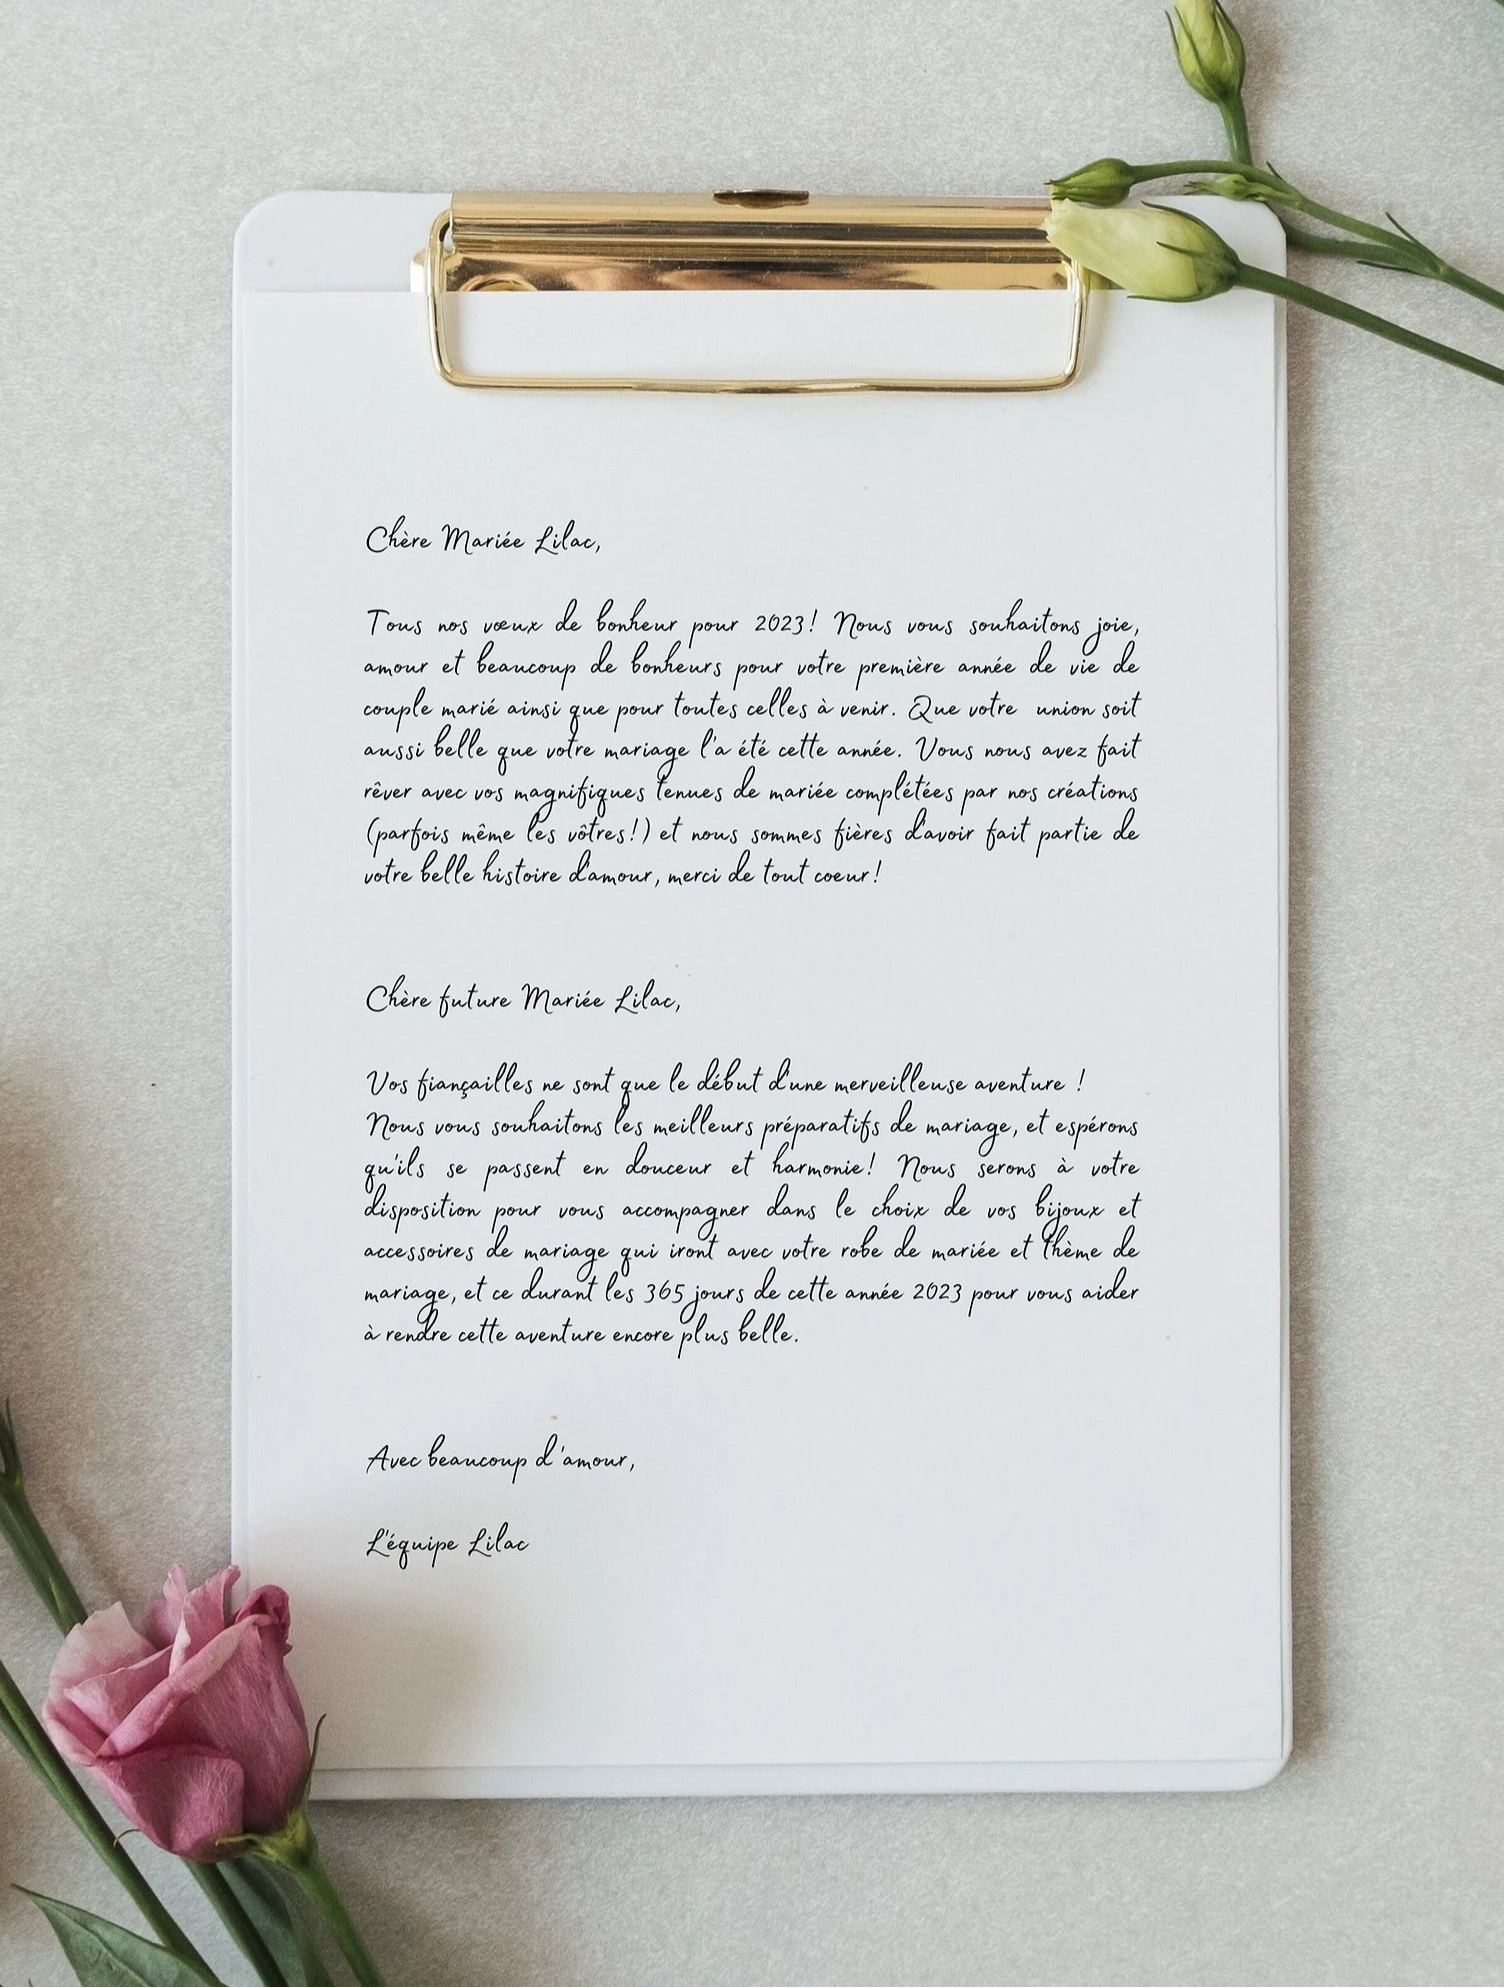 Chère Mariée Lilac,
Tous nos vœux de bonheur pour 2023! Nous vous souhaitons joie,
amour et beaucoup de bonheurs pour votre première année de vie de
couple marié ainsi que pour toutes celles à venir. Que votre union soit
aussi belle que votre mariage l'a été cette année. Vous nous avez fait
rêver avec vos magnifiques tenues de mariée complétées par nos créations
(parfois même les vôtres!) et nous sommes fières d'avoir fait partie de
votre belle histoire d'amour, merci de tout coeur!
Chère future Mariée Lilac,
Vos fiançailles ne sont que le début d'une merveilleuse aventure !
Nous vous souhaitons les meilleurs préparatifs de mariage, et espérons
qu'ils se passent en douceur et harmonie! Nous serons à votre
disposition pour vous accompagner dans le choix de vos bijoux et
accessoires de mariage qui iront avec votre robe de mariée et thème de
mariage, et ce durant les 365 jours de cette année 2023 pour vous aider
à rendre cette aventure encore plus belle.
Avec beaucoup d'amour,
L'équipe Lilac